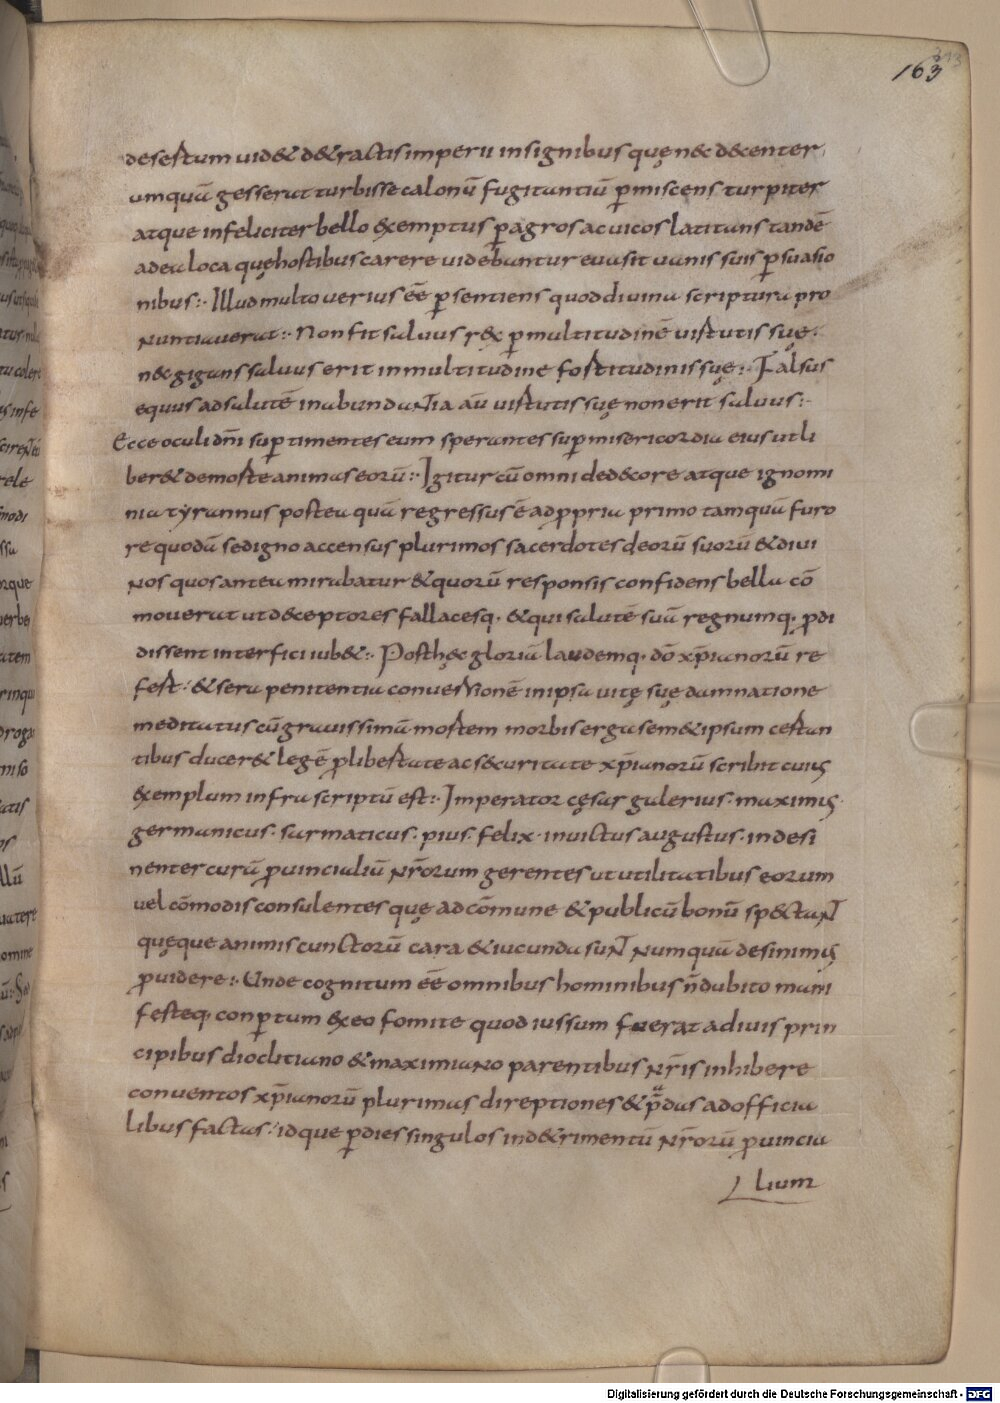 163
desertum uid& d&ractis imperii insignibus quę nec decenter
umquā gesserat turbisse calonū fugitantiū ꝑmiscens turpiter
atque infeliciter bello exemptus ꝑ agros ac uicos latitans tandē
ad ea loca quę hostibus carere uidebantur euasit uanis suis ꝑsuasio
nibus:· Illud multo uerius eē ꝑsentiens quod diuina scriptura pro
nuntiauerat:· Non fit saluus rex ꝑ multitudinē uirtutis suę·
nec gigans saluus erit in multitudine fortitudinis suę:· Falsus
equus ad salutē in abundantia aū uirtutis suę non erit saluus:·
Ecce oculi dn̄i suꝑ timentes eum sperantes suꝑ misericordia eius ut li
ber& de morte animas eorū:· Igitur cū omni dedecore atque ignomi
nia tyrannus postea quā regressus ē ad ꝓpria primo tamquā furo
re quodā sed igno accensus plurimos sacerdotes deorū suorū & diui
nos quos antea mirabatur & quorū responsis confidens bella cō
mouerat ut deceptores fallacesq· & qui salutē suā regnumq· ꝑdi
dissent interfici iub&:· Post hęc gloriā laudemq· dō xp̄ianorū re
fert:· & sera penitentia conuersionē in ipsa uitę suę damnatione
meditatus cū grauissimā mortem morbis erga sem&ipsum certan
tibus ducer& legē ꝓ libertate ac securitate xp̄ianorū scribit cuius
exemplum infra scriptū est:· Imperator cęsar galerius· maximus·
germanicus· sarmaticus· pius· felix· inuictus augustus· indesi
nenter curā ꝓuincialiū nr̄orum gerentes ut utilitatibus eorum
uel cōmodis consulentes quę ad cōmune & publicū bonū spectant
quęque animis cunctorū cara & iucunda sunt numquā desinimus
ꝓuidere:· Unde cognitum eē omnibus hominibus n̄ dubito mani
festeq· conꝑtum ex eo fomite quod iussum fuerat a diuis prin
cipibus dioclitiano & maximiano parentibus nr̄is inhibere
conuentos xp̄ianorū plurimas direptiones & p̄das ad officia
libus factas:· idque ꝑ dies singulos in detrimentū nr̄orū ꝓuincia
lium
Digitalisierung gefördert durch die Deutsche Forschungsgemeinschaft - DFG